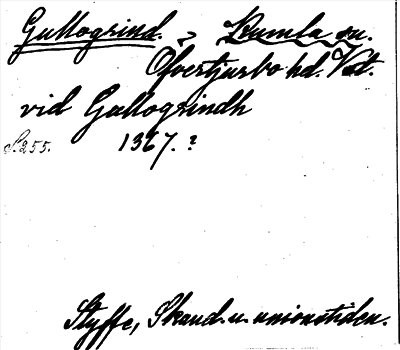 Gullogrind. > Kumla sn.
Öfvertjurbo hd. Vst.
vid Gullogrindh
S. 255. 1367. ?
Styffe, Skand. u. unionstiden.